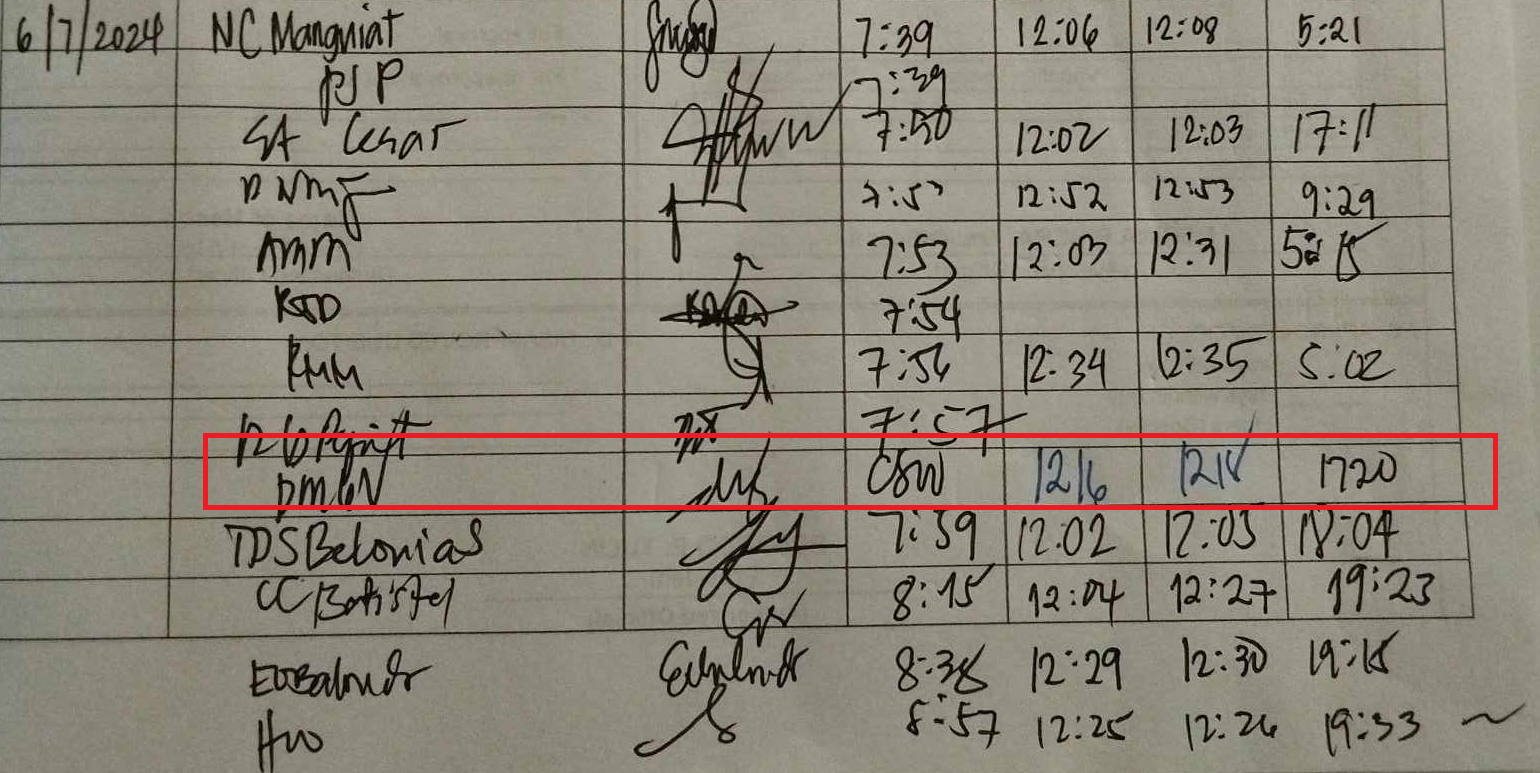 6/7/2024 NC Manguiat 7:39 12:06 12:08 5:21
PJP 7:39
SA Cesar 7:50 12:02 12:03 17:11
DNMF 12:52 12:53 9:29
AMM 7:53 12:03 12:31 5:15
KSD 7:54
RMM 7:56 12:34 12:35 5:02
7:57
1216 1218 1720
TDS Belonias 7:39 12:02 12:03 18:04
CC Batistel 8:15 12:04 12:27 19:23
8:38 12:29 12:30 19:15
8:57 12:25 12:26 19:33